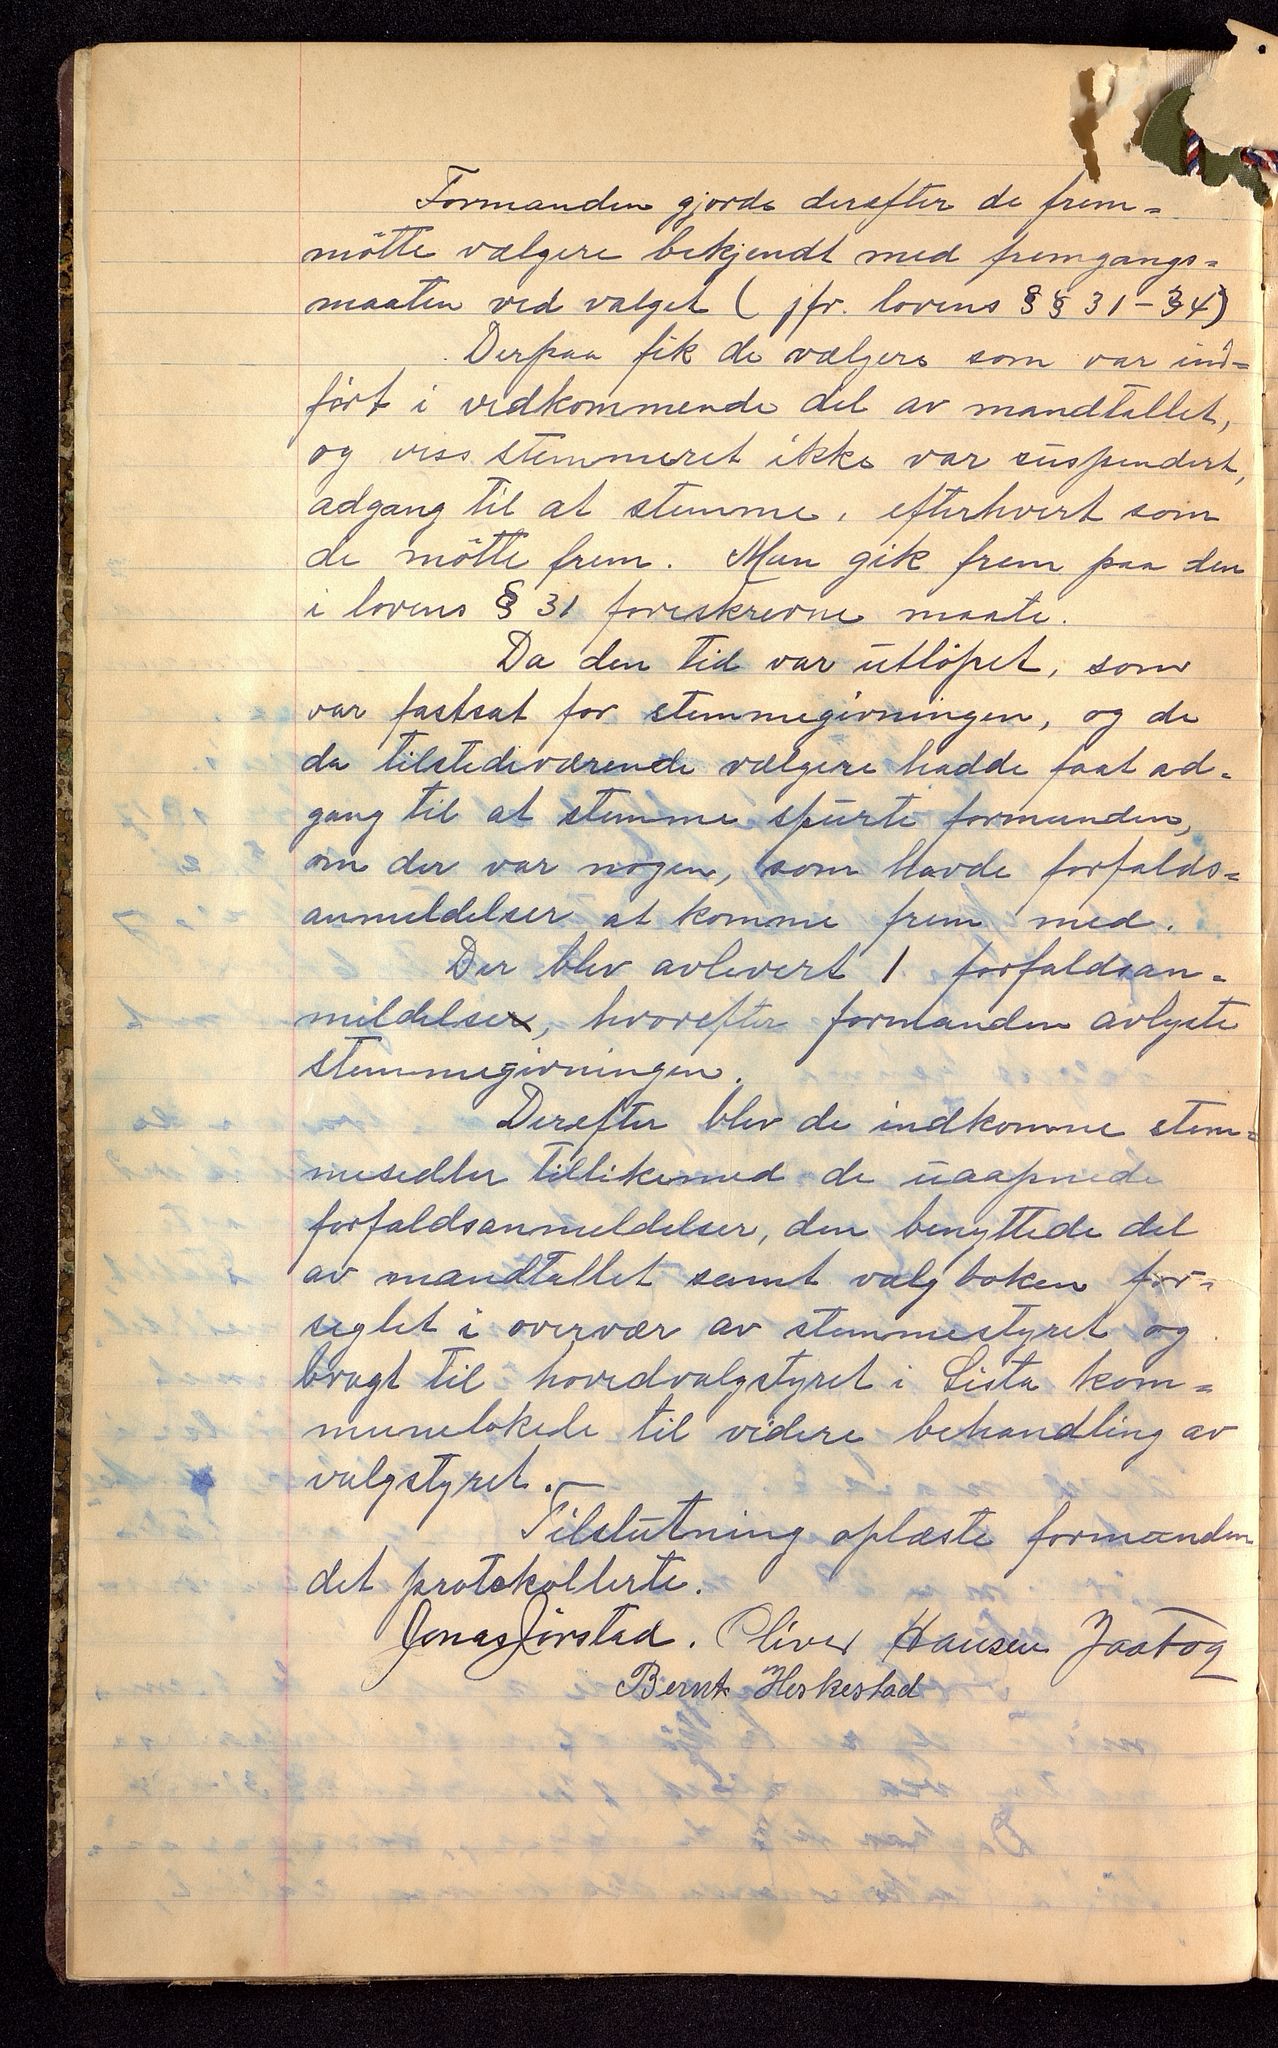 Formanden gjorde derefter de frem-
møtte vælgere bekjendt med fremgangs-
maaten ved valget ( jfr. lovens § § 31-34)
Derpaa fik de vælgere som var ind-
ført i vedkommende del av mandtallet,
og viss stemmeret ikke var suspendert,
adgang til at stemme, efterhvert som
de møtte frem. Man gik frem paa den
i lovens § 31 foreskrevne maate.
Da den tid var utløpet, som
var fastsat for stemmegivningen, og de
da tilstedeværende vælgere hadde faat ad-
gang til at stemme spurte formanden,
om der var nogen, som havde forfalds-
anmeldelser at komme frem med.
Der blev avlevert 1 forfaldsan-
meldelse, hvorefter formanden avlyste
stemmegivningen.
Derefter blev de indkomne stem-
mesedler tillikemed de uaapnede
forfaldsanmeldelser, den benyttede del
av mandtallet samt valgboken for-
seglet i overvær av stemmestyret og
bragt til hovedvalgstyret i Lista kom-
munelokale til videre behandling av
valgstyret.
Tilslutning oplæste formanden
det protokollerte.
Jonas Jørstad. Oliver Hansen Jaatog
Bernt Heskestad